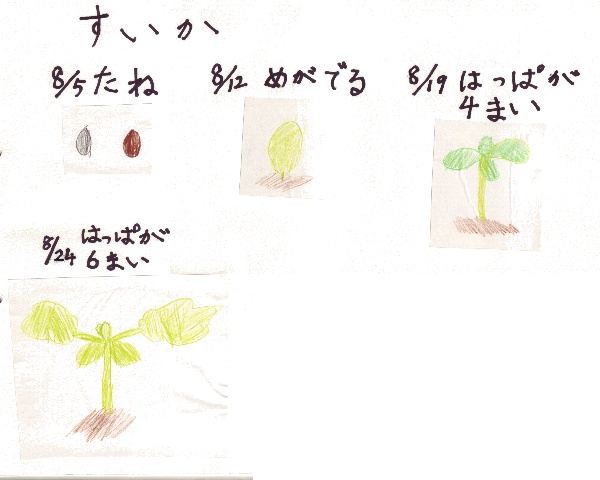 すいか
8/5 たね
8/12 めがでる
8/19 はっぱが
4まい
8/24 はっぱが
6まい